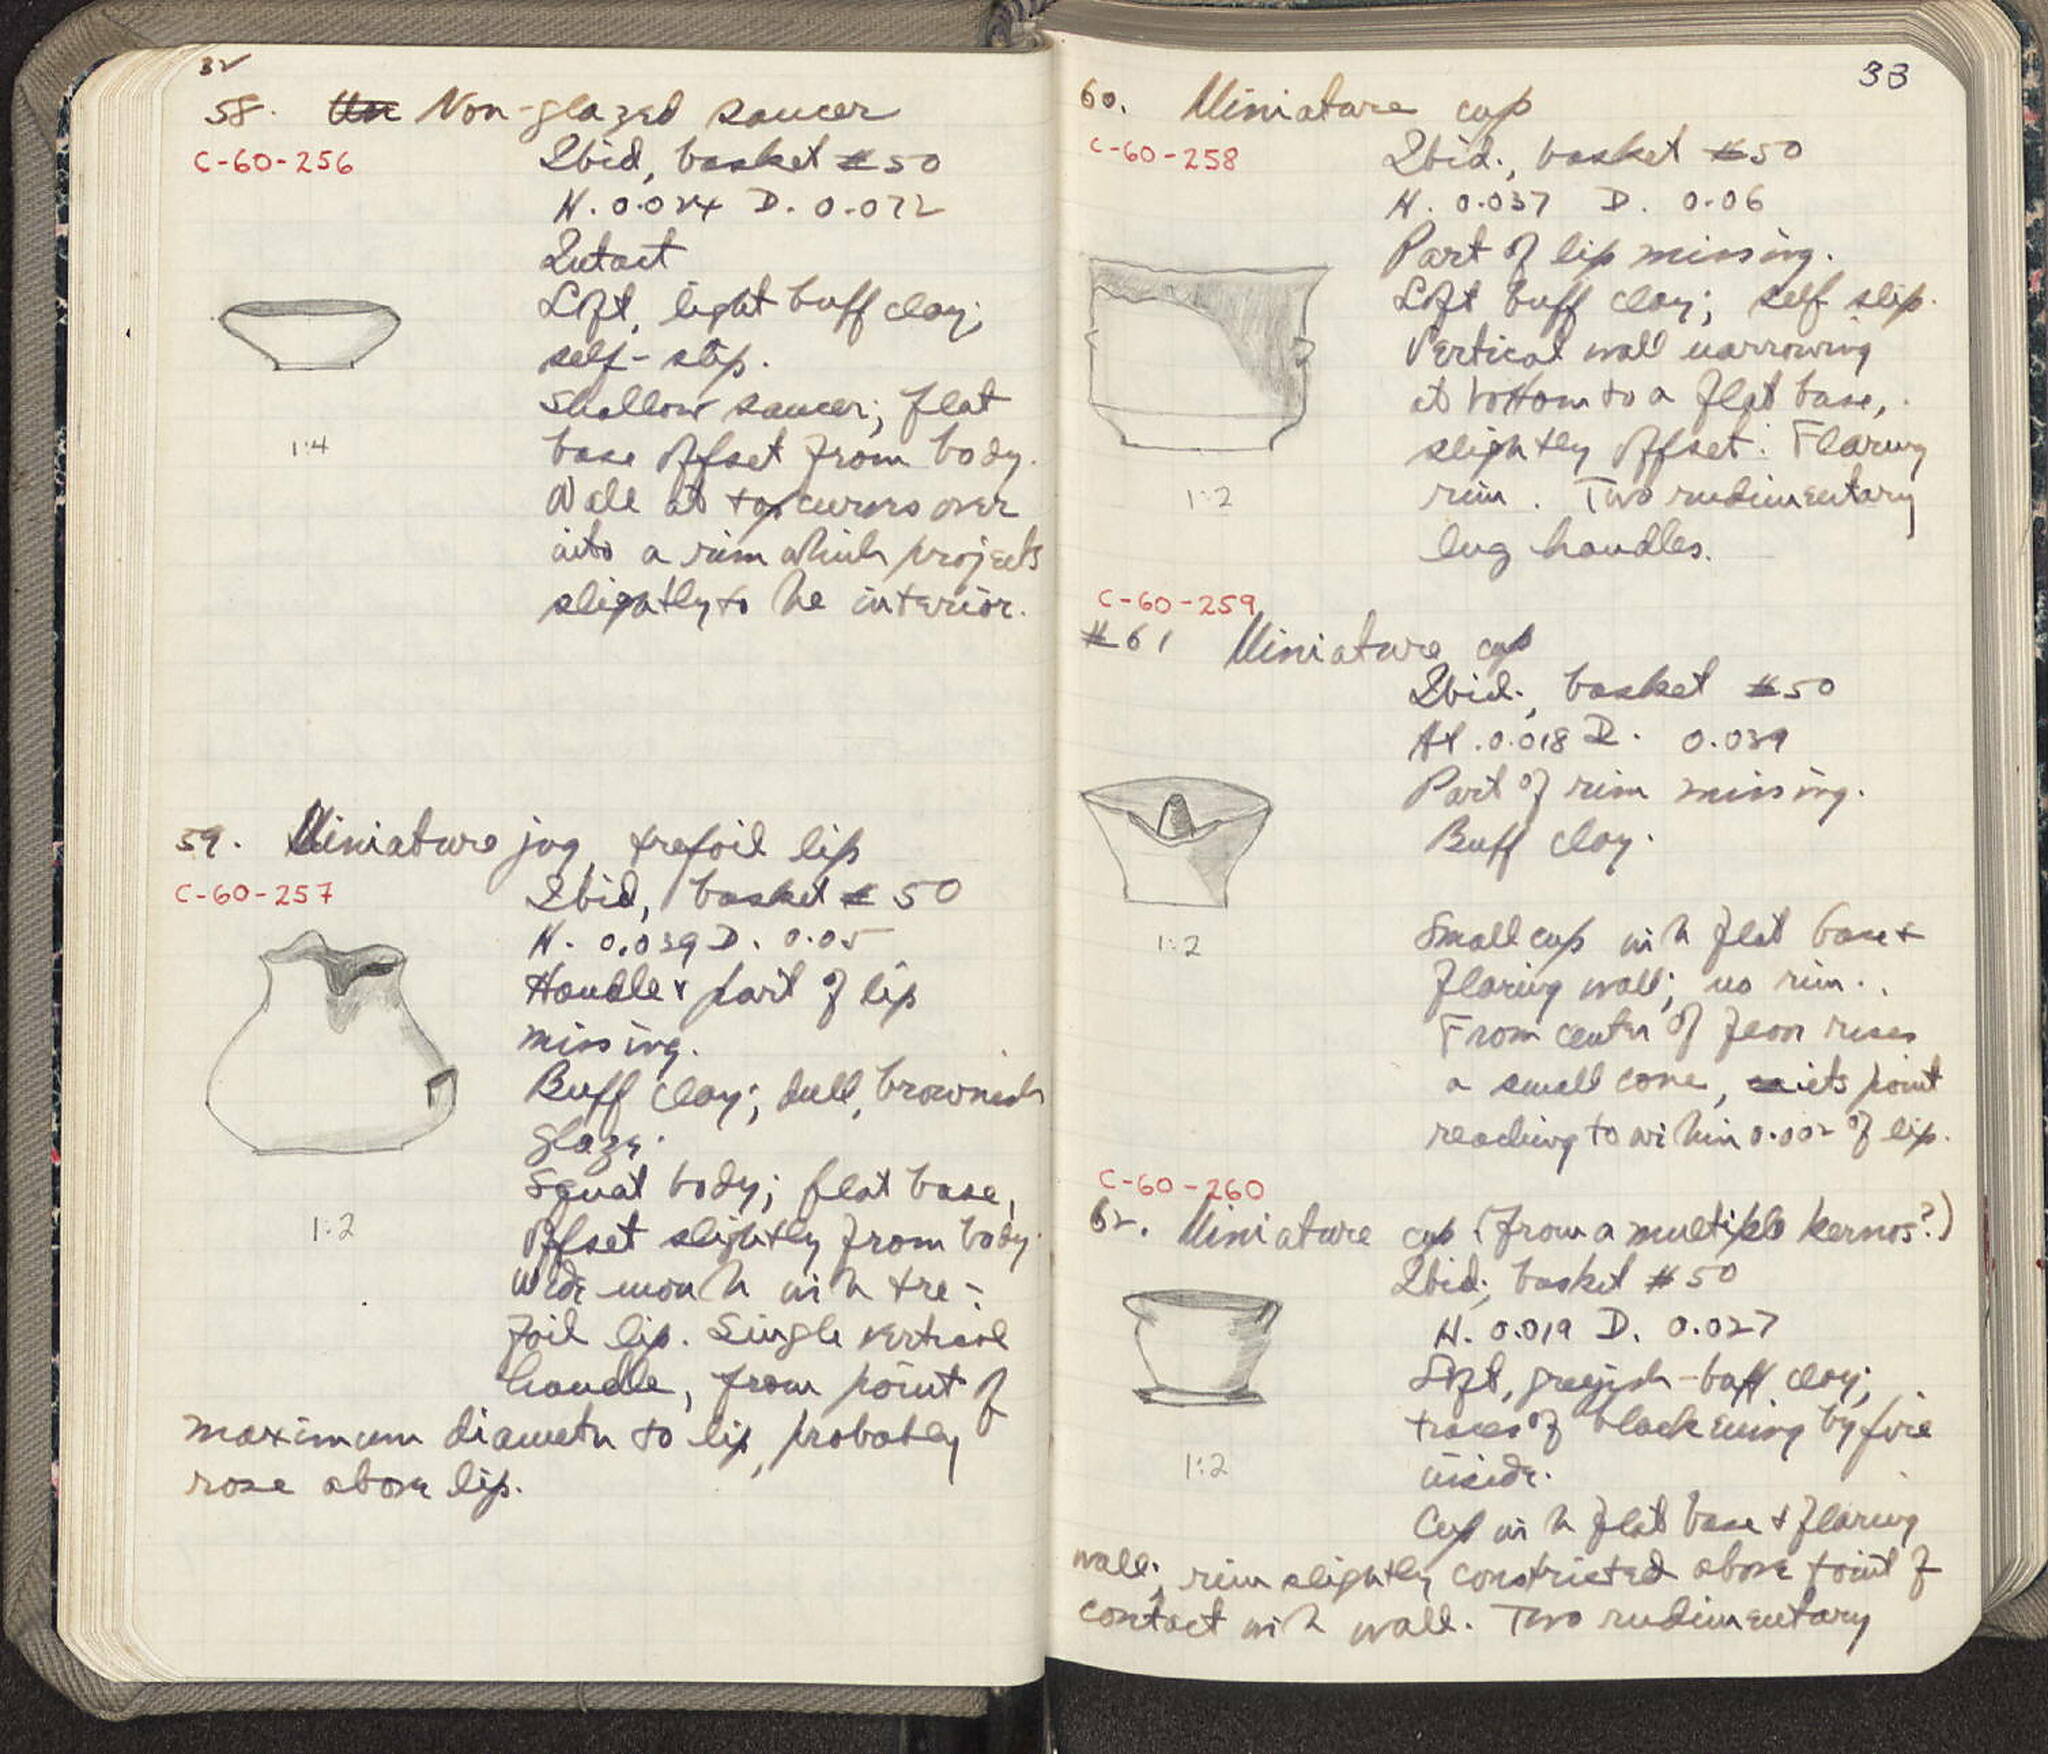 32
58. Non-glazed saucer
C-60-256
Ibid, basket #50
H. 0.024 D. 0.072
Intact
Soft, light buff clay;
self-slip.
1:4
Shallow saucer; flat
base offset from body.
Wall at top curves over
into a rim which projects
slightly to the interior.
59. Miniature jug, trefoil lip
C-60-257
Ibid, basket # 50
H. 0.039 D. 0.05
Handle & part of lip
missing.
Buff clay; dull, brownish
glaze.
Squat body; flat base,
1:2
offset slightly from body.
Wide mouth with tre-
foil lip. Single vertical
handle, from point of
maximum diameter to lip, probably
rose above lip.
33
60. Miniature cup
C-60-258
Ibid., basket #50
H. 0.037 D. 0.06
Part of lip missing.
Soft buff clay; self slip.
Vertical wall narrowing
at bottom to a flat base,
slightly offset. Flaring
1:2
rim. Two rudimentary
lug handles.
C-60-259
#61 Miniature cup
Ibid., basket #50
Ht. 0.018 D. 0.039
Part of rim missing.
Buff clay.
1:2
Small cup with flat base &
flaring wall; no rim.
From center of floor rises
a small cone, its point
reaching to within 0.002 of lip.
C-60-260
62. Miniature cup (from a multiple kernos?)
Ibid; basket #50
H. 0.019 D. 0.027
Soft, greyish-buff clay;
traces of blackening by fire
1:2
inside.
Cup with flat base & flaring
wall; rim slightly constricted above point of
contact with wall. Two rudimentary